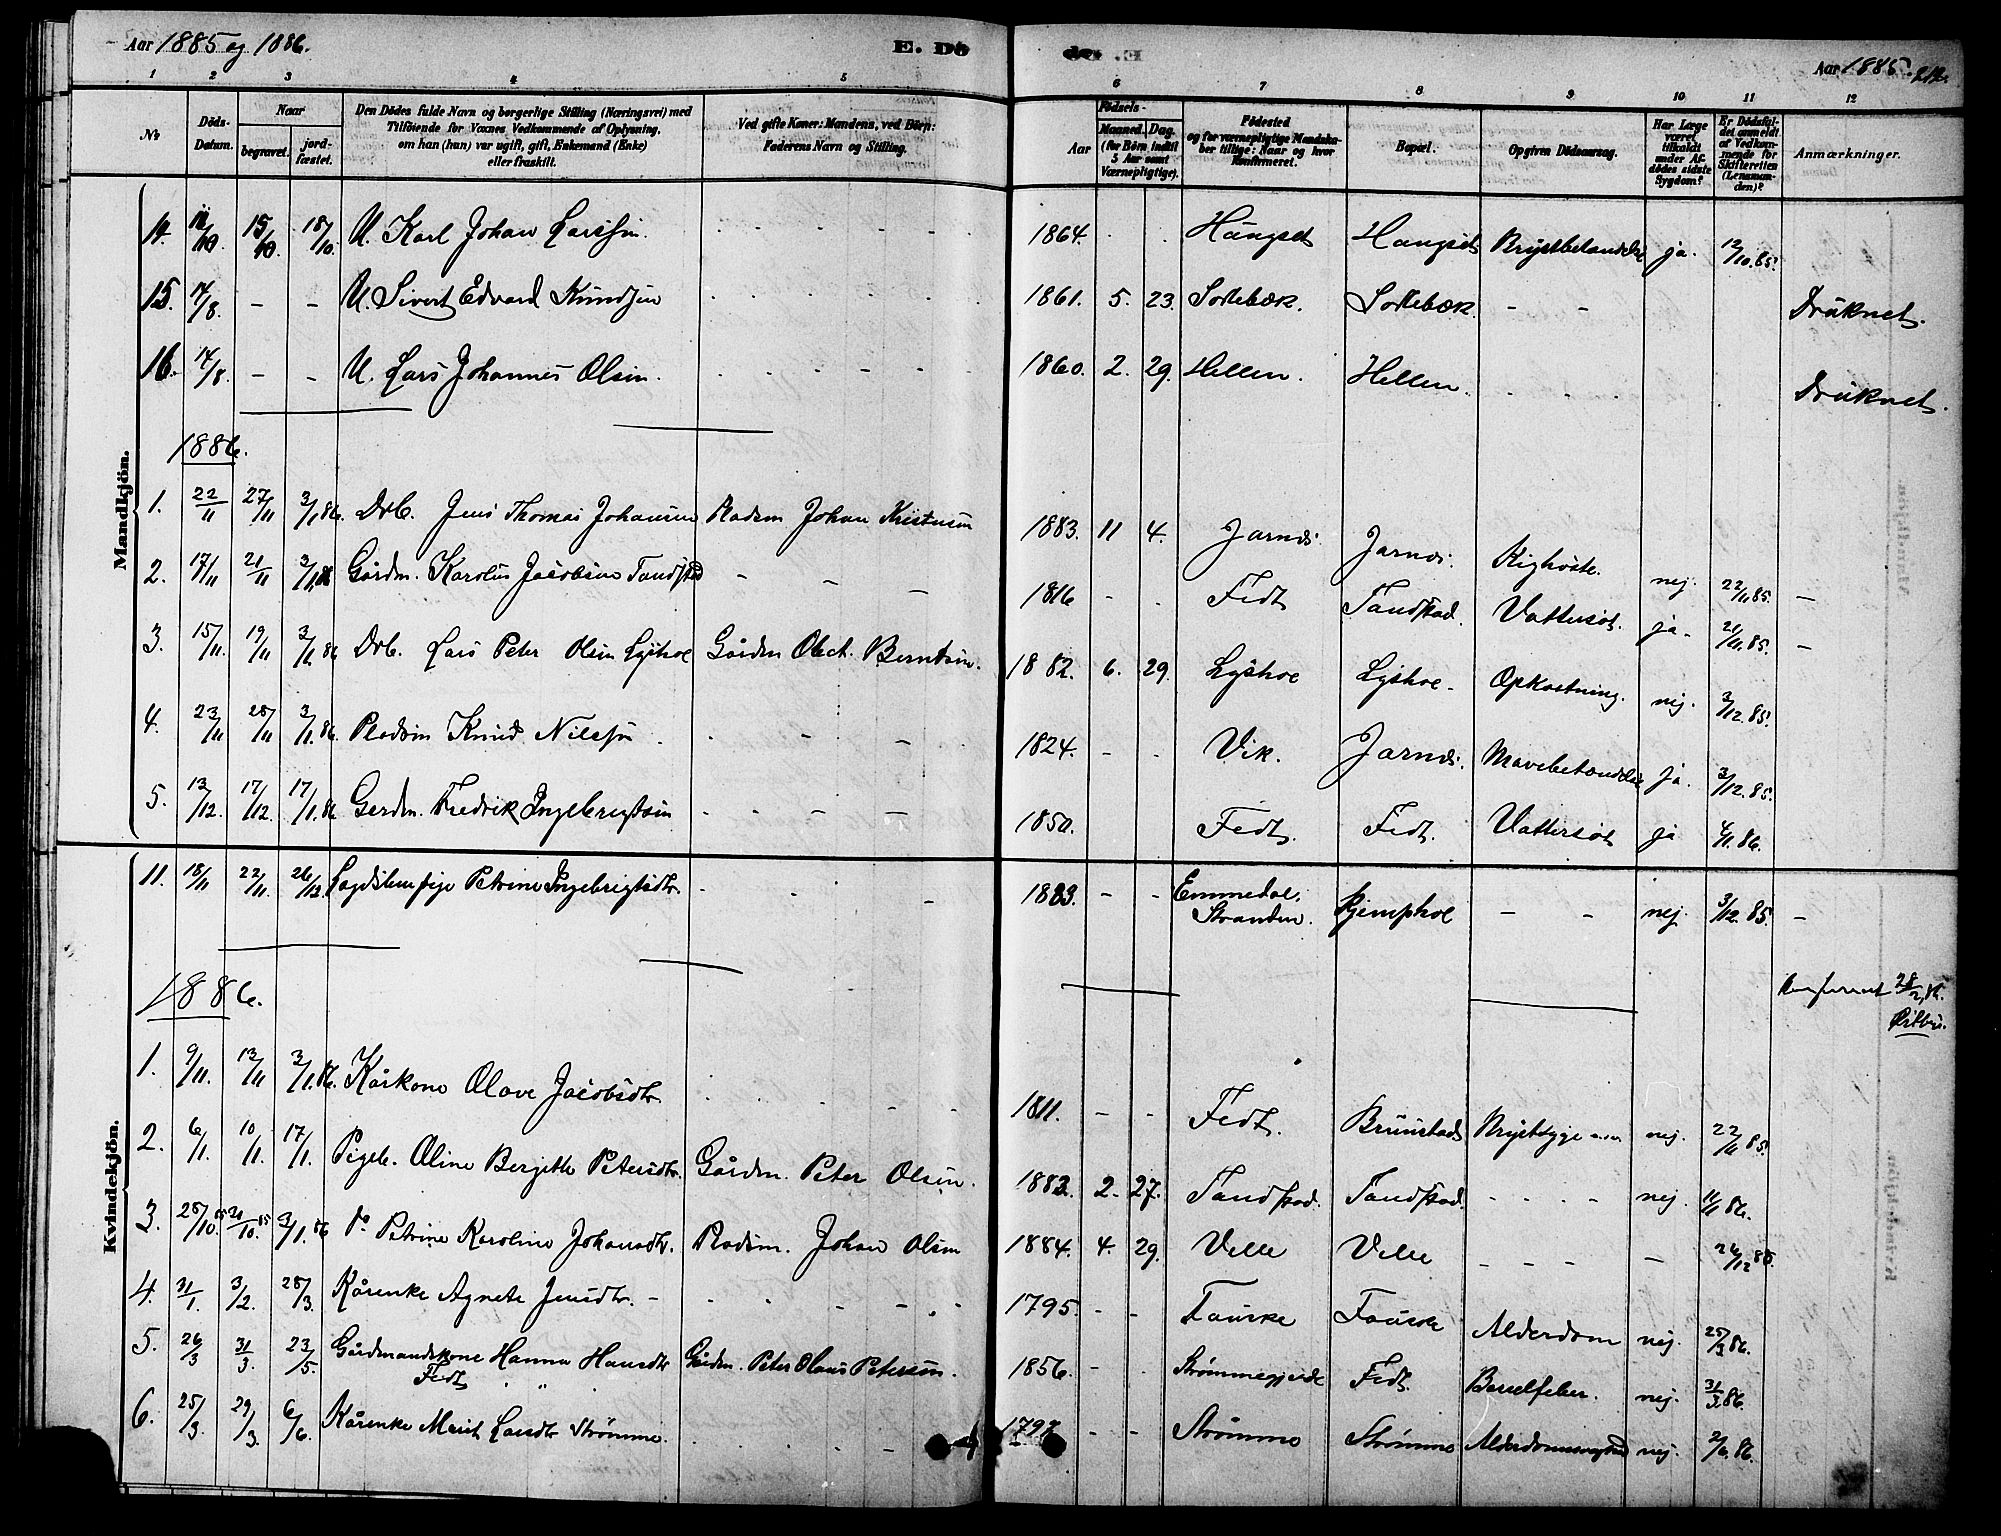 Aar 1885 og 1886. E. Dö
Aar 1885. 212.
1 2 3 4 5 6 7 8 9 10 11 12
No Döds-Datum. Naar begravet. jord-fæstet. Den Dödes fulde Navn og borgerlige Stilling (Næringsvei) med Tilföiende for Voxnes Vedkommende af Oplysning, om han (hun) var ugift, gift, Enkemand (Enke) eller fraskilt. Ved gifte Koner: Mandens, ved Börn: Faderens Navn og Stilling.
Födsels- Aar Maaned. Dag. (for Börn indtil 5 Aar samt Værnepligtige). Födested og for værnepligtige Mandskaber tillige: Naar og hvor Konfirmeret. Bopæl. Opgiven Dödsaarsag. Har Læge været tilkaldt under Afdödes sidste Sygdom? Er Dödsfaldet anmeldt af Vedkommende for Skifteretten (Lensmanden)? Anmærkninger.
Mandkjön.
14. 15/10 18/10. U. Karl Johan Larssen. 1864. Haugset Haugset Brystbetændelse ja. 12/10.85.
15. 14/8. – – U. Sivert Edvard Knudsen 1861. 5. 23. Sollebæk. Sollebæk. – – Druknet.
16. 14/8. – – U. Lars Johannes Olsen. 1860. 2. 29. Hellen. Hellen. Druknet.
1886.
1. 22/11 27/11 3/1.86. Drb. Jens Thomas Johansen Pladsm Johan Kristensen 1883. 11 4. Jarnes. Jarnes. Kighoste. nej. 22/11 85. –
2. 17/11 21/11 3/1.86 Gårdm. Karolus Jacobsen Tandstad – – – 1816 – Fedt Tandstad. Vattersot. ja. 21/11.85. –
3. 15/11. 19/11 3/1.86 Drb. Lars Peter Olsen Lyshoe Gårdm Olect. Berntsen. 1882. 6. 29. Lyshoe Lyshoe. Opkastning. nej. 3/12.85.
4. 23/11 28/11 3/1.86. Pladsm Knud Nilssen. 1824. – – Vik. Jarnes. Mavebetændelse ja. 3/12.85.
5. 13/12. 17/12. 17/1.86 Gerdm. Fredrik Ingebrigtsen 1850. Fedt. Fedt. Vattersot ja 4/1.86.
Kvindekjön.
11. 18/11 22/11. 26/12 Lægdslem pige Petrine Ingebrigtsdtr. 1883. – – Emmedal. Stranden. Kjemphoe – – nej. 3/12.85. –
1886.
28/2.86.
1. 9/11. 13/11 3/1.86. Kårkone Olave Jacobsdtr 1811. – – Fedt. Brunstad Brystsyge nej. 22/11 85.
2. 6/1. 10/1. 17/1. Pigeb. Oline Bergitte Petersdtr. Gårdm. Peter Olsen. 1882. 2. 27. Tandstad. Tandstad. – – – – nej. 11/1 86.
3. 28/10.85 31/10.85 3/1.86 Do Petrine Karoline Johansdtr. Pladsm. Johan Olsen 1884. 4. 29. Velle Velle – – – – 26/12 85.
4. 31/1. 3/2. 28/3. Kårenke Agnete Jensdtr. – 1795. – – Fauske Fauske Alderdom nej. 25/3 86.
5. 26/3 31/3. 23/5. Gårdmandskone Hanna Hansdtr Gårdm. Peter Olaus Petersen. 1856. – Strømmegjerde Fedt. Barselfeber. nej. 31/3.86.
Fedt " "
6. 25/3. 29/3. 6/6. Kårenke Marit Larsdtr Strømme. 1797 – – Strømme Strømme Alderdomssvaghed nej. 2/6.86.